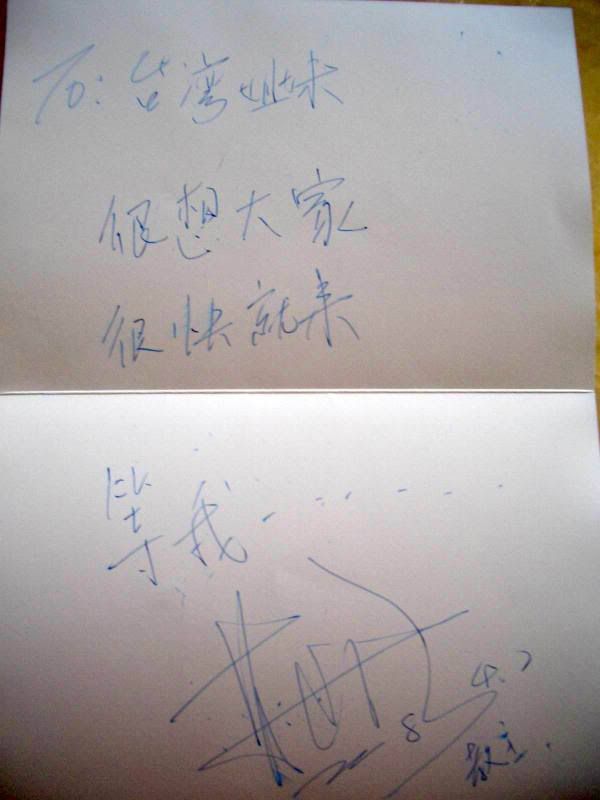 To: 台湾姐妹
很想大家
很快就来
等我......
4.7